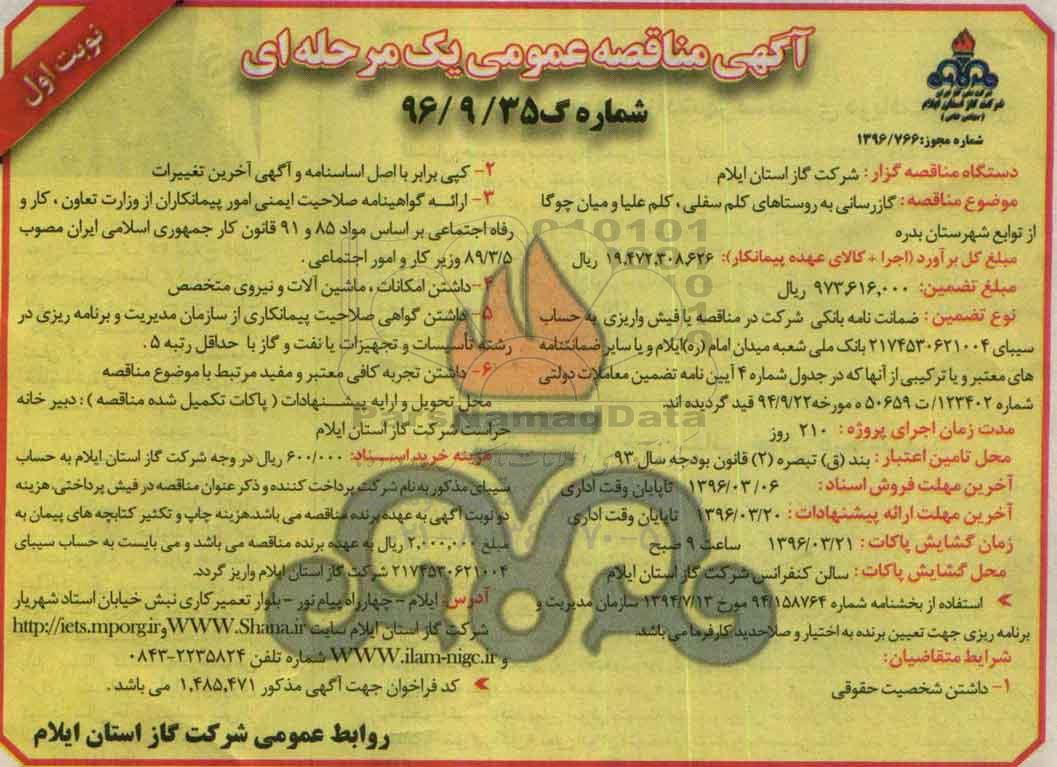 نوبت اول
آگهی مناقصه عمومی یک مرحله ای
شماره گ۹۶/۹/۳۵
شرکت ملی گاز ایران
شرکت گاز استان ایلام
(سهامی خاص)
شماره مجوز:۱۳۹۶/۷۶۶
دستگاه مناقصه گزار: شرکت گاز استان ایلام
موضوع مناقصه: گازرسانی به روستاهای کلم سفلی ، کلم علیا و میان چوگا
از توابع شهرستان بدره
مبلغ کل برآورد (اجرا + کالای عهده پیمانکار): ۱۹,۴۷۲,۳۰۸,۶۲۶ ریال
مبلغ تضمین: ۹۷۳,۶۱۶,۰۰۰ ریال
نوع تضمین : ضمانت نامه بانکی شرکت در مناقصه یا فیش واریزی به حساب
سیبای ۲۱۷۴۵۳۰۶۲۱۰۰۴ بانک ملی شعبه میدان امام (ره)ایلام و یا سایر ضمانتنامه
های معتبر و یا ترکیبی از آنها که در جدول شماره ۴ آیین نامه تضمین معاملات دولتی
شماره ۱۲۳۴۰۲/ت ۵۰۶۵۹ ه مورخه ۹۴/۹/۲۲ قید گردیده اند.
مدت زمان اجرای پروژه : ۲۱۰ روز
محل تامین اعتبار : بند (ق) تبصره (۲) قانون بودجه سال ۹۳
آخرین مهلت فروش اسناد: ۱۳۹۶/۰۳/۰۶ تاپایان وقت اداری
آخرین مهلت ارائه پیشنهادات : ۱۳۹۶/۰۳/۲۰ تاپایان وقت اداری
زمان گشایش پاکات : ۱۳۹۶/۰۳/۲۱ ساعت ۹ صبح
محل گشایش پاکات : سالن کنفرانس شرکت گاز استان ایلام
استفاده از بخشنامه شماره ۹۴/۱۵۸۷۶۴ مورخ ۱۳۹۴/۷/۱۳ سازمان مدیریت و
برنامه ریزی جهت تعیین برنده به اختیار و صلاحدید کارفرما می باشد.
شرایط متقاضیان:
۱- داشتن شخصیت حقوقی
۲- کپی برابر با اصل اساسنامه و آگهی آخرین تغییرات
۳- ارائه گواهینامه صلاحیت ایمنی امور پیمانکاران از وزارت تعاون ، کار و
رفاه اجتماعی بر اساس مواد ۸۵ و ۹۱ قانون کار جمهوری اسلامی ایران مصوب
۸۹/۳/۵ وزیر کار و امور اجتماعی .
۴-داشتن امکانات ، ماشین آلات و نیروی متخصص
۵- داشتن گواهی صلاحیت پیمانکاری از سازمان مدیریت و برنامه ریزی در
رشته تأسیسات و تجهیزات یا نفت و گاز با حداقل رتبه ۵ .
۶- داشتن تجربه کافی معتبر و مفید مرتبط با موضوع مناقصه
محل تحویل و ارایه پیشنهادات ( پاکات تکمیل شده مناقصه ) : دبیر خانه
حراست شرکت گاز استان ایلام
هزینه خرید اسناد: ۶۰۰/۰۰۰ ریال در وجه شرکت گاز استان ایلام به حساب
سیبای مذکور به نام شرکت پرداخت کننده و ذکر عنوان مناقصه در فیش پرداختی. هزینه
دو نوبت آگهی به عهده برنده مناقصه می باشد.هزینه چاپ و تکثیر کتابچه های پیمان به
مبلغ ۲,۰۰۰,۰۰۰ ریال به عهده برنده مناقصه می باشد و می بایست به حساب سیبای
۲۱۷۴۵۳۰۶۲۱۰۰۴ شرکت گاز استان ایلام واریز گردد.
آدرس: ایلام - چهارراه پیام نور - بلوار تعمیرکاری نبش خیابان استاد شهریار
شرکت گاز استان ایلام سایت WWW.Shana.ir و http://iets.mporg.ir
و WWW.ilam-nigc.ir شماره تلفن ۲۲۳۵۸۲۴-۰۸۴۳
کد فراخوان جهت آگهی مذکور ۱,۴۸۵,۴۷۱ می باشد .
روابط عمومی شرکت گاز استان ایلام
ParsNamadData